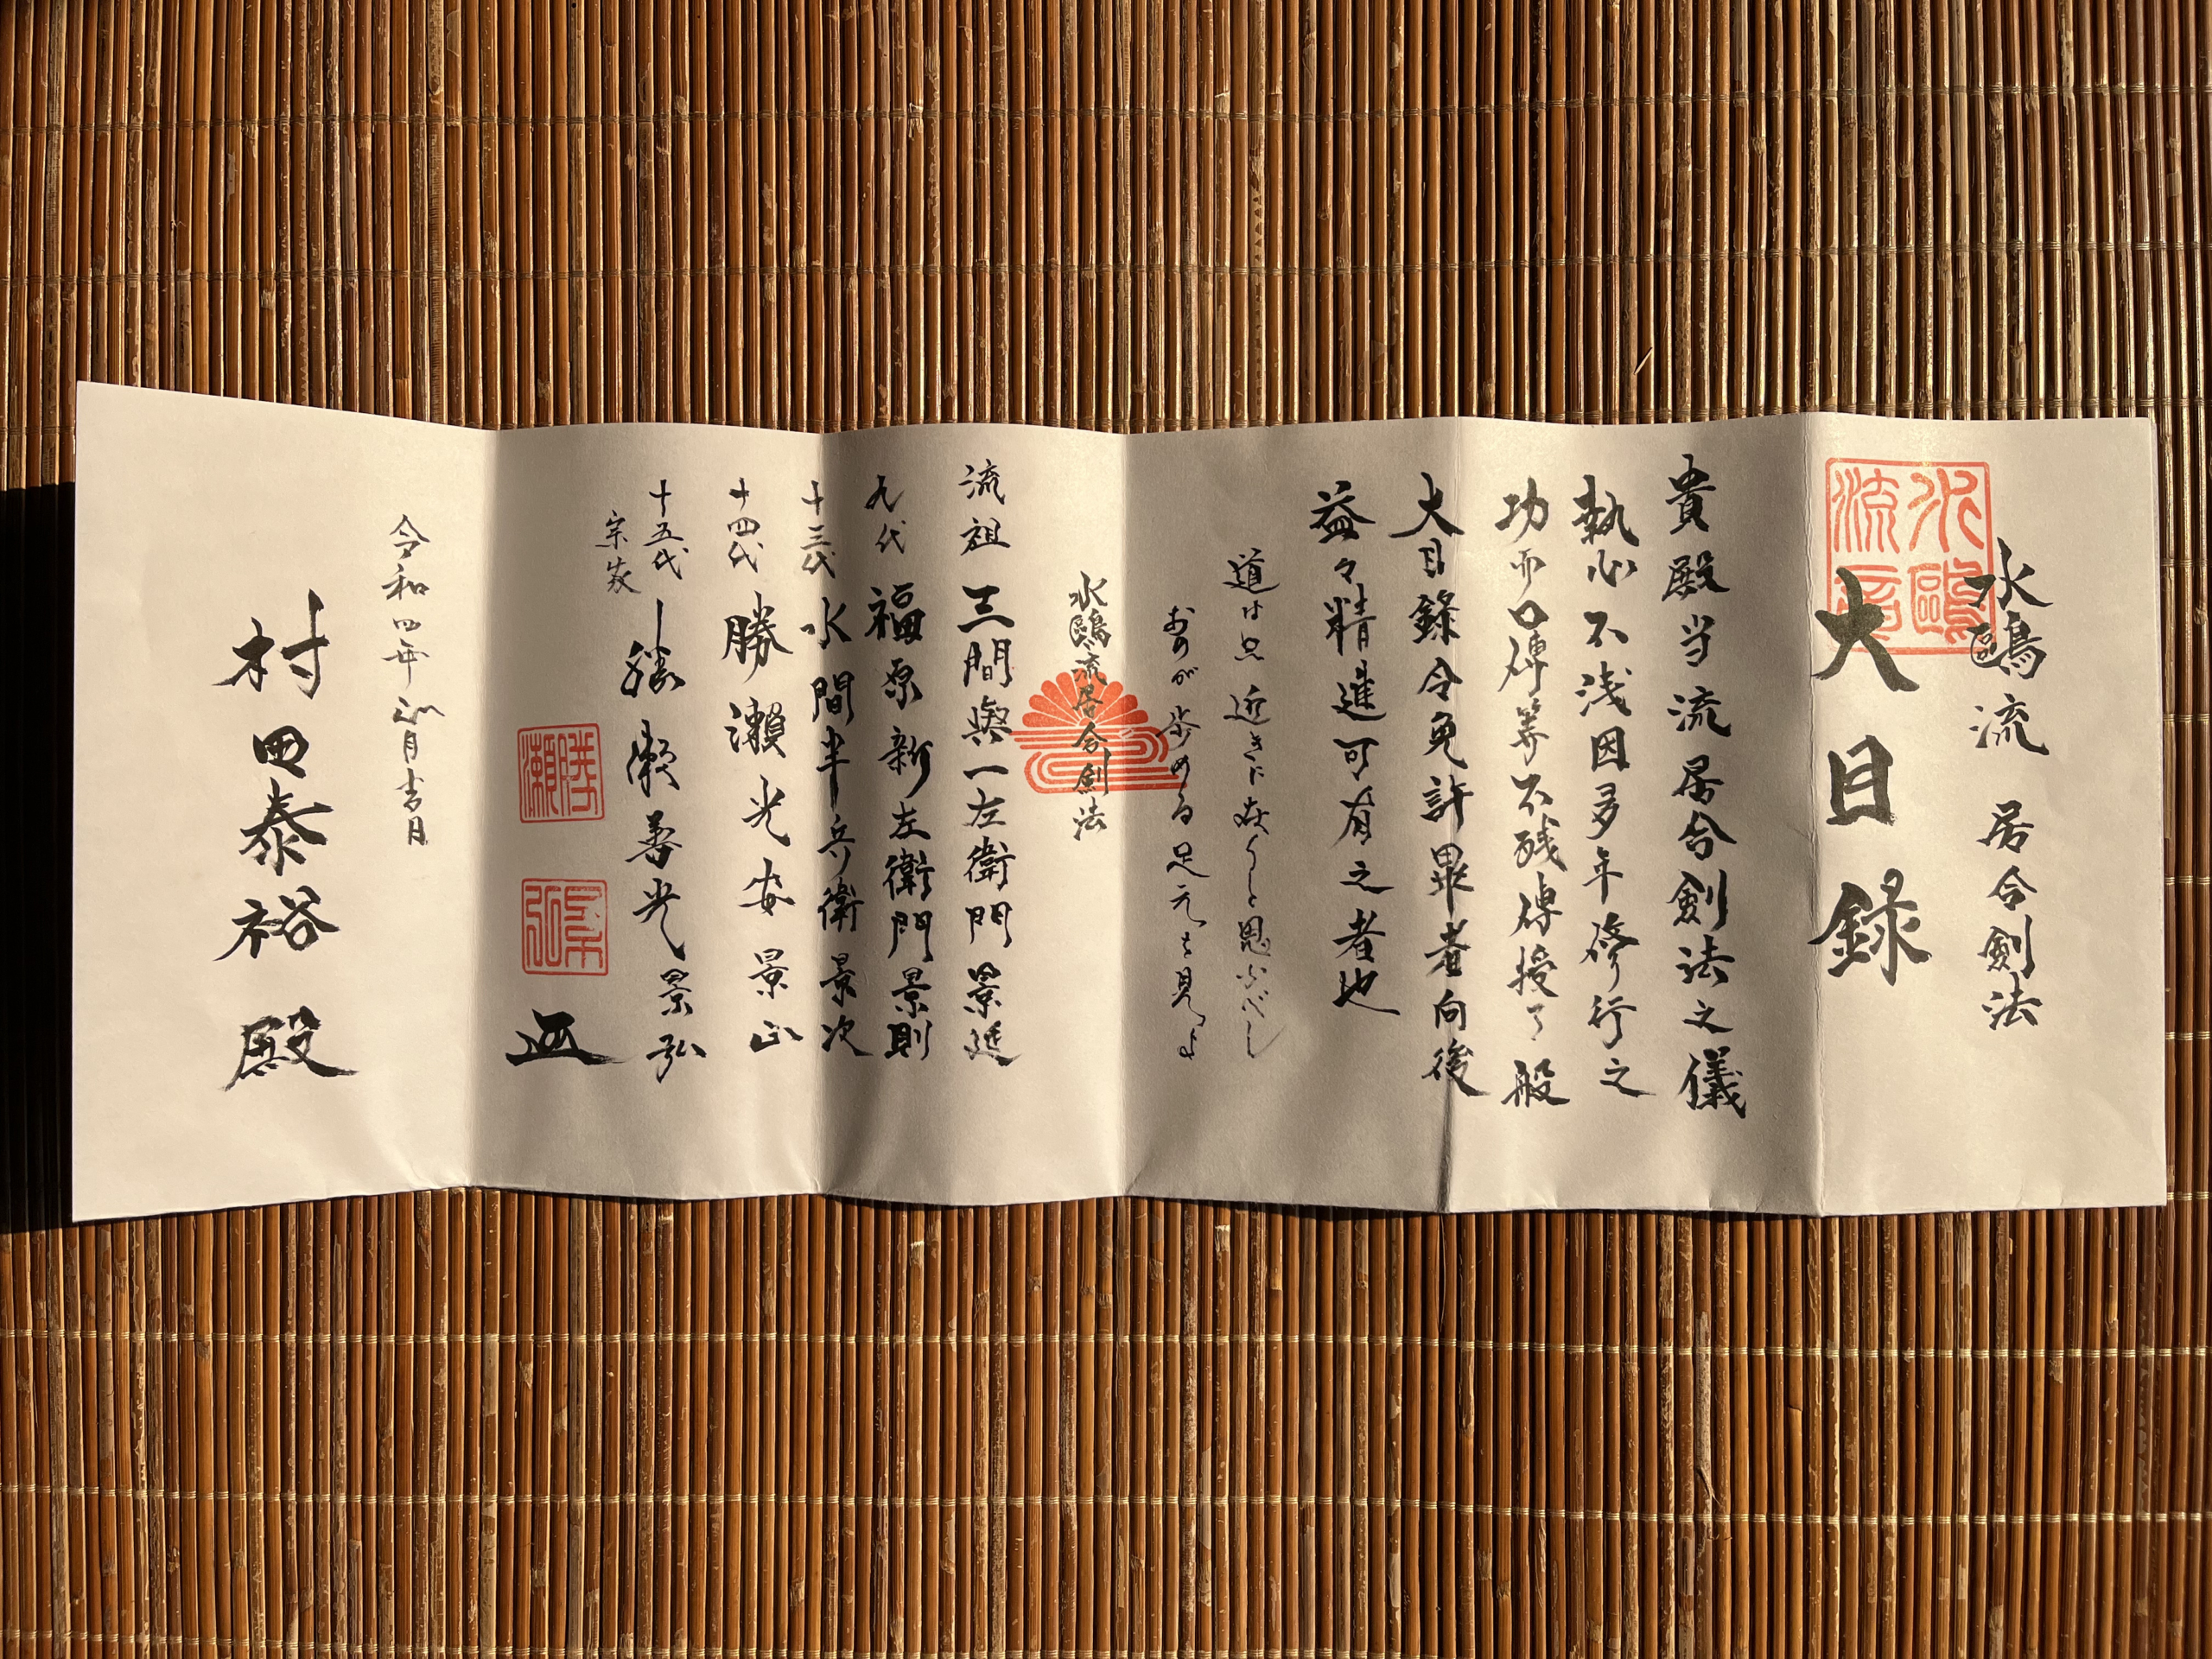 水鷗流 居合剣法
大目録
水鷗流
貴殿当流居合剣法之儀
執心不浅因多年修行之
功而口傳等不残傳授了般
大目録令免許畢者向後
益々精進可有之者也
道は只近きに在りしと思ふべし
おのが歩める足元を見よ
水鷗流居合剣法
流祖 三間與一左衛門景延
九代 福原新左衛門景則
十三代 水間半兵衛景次
十四代 勝瀬光安景正
十五代 宗家 勝瀬善光景弘
勝瀬
景弘
令和四年 月吉日
村田泰裕殿